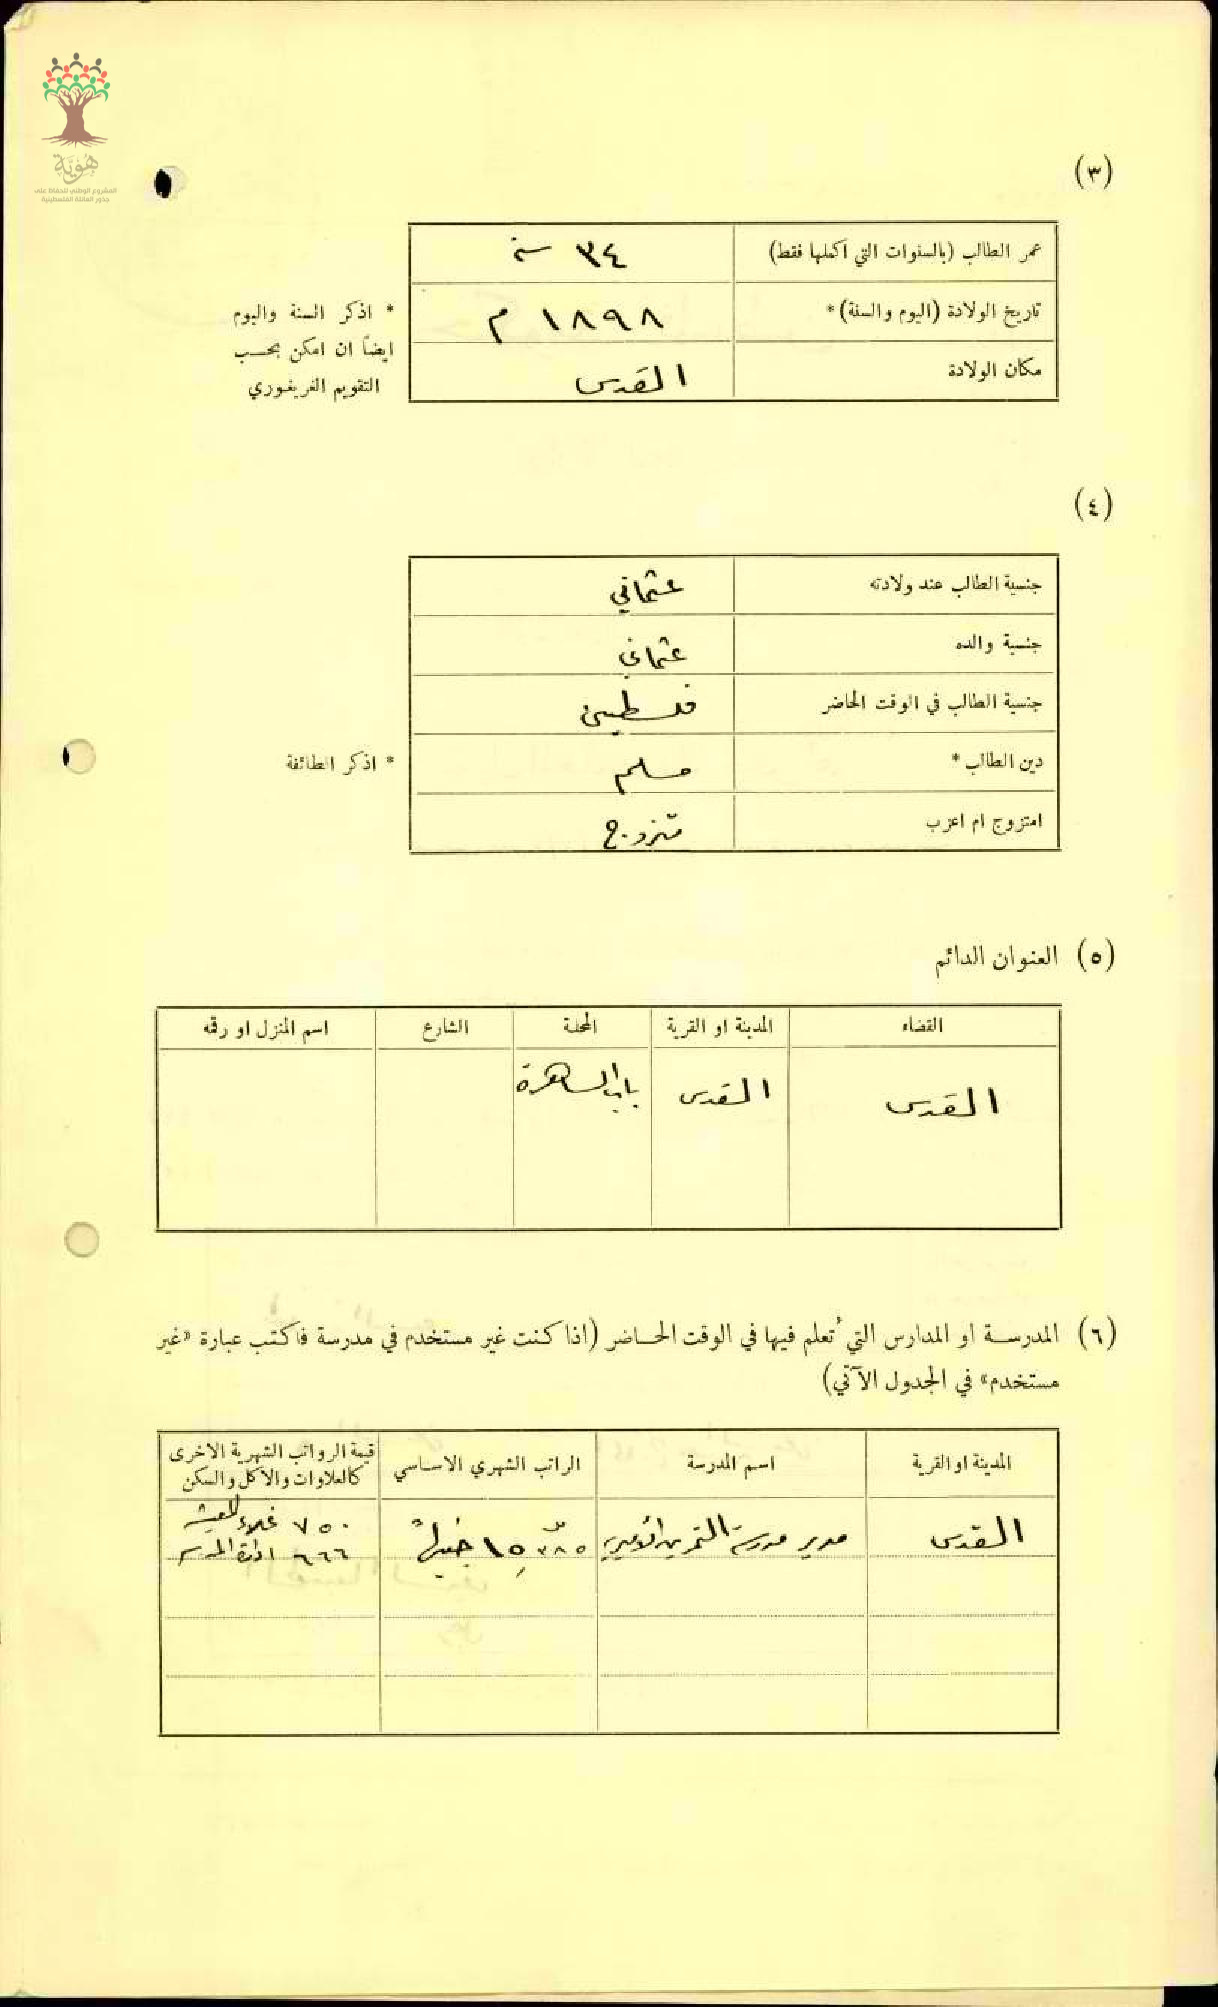 هُوِيَّة
المشروع الوطني للحفاظ على
جذور العائلة الفلسطينية
(٣)
عمر الطالب (بالسنوات التي اكملها فقط) ٣٤ سنة
تاريخ الولادة (اليوم والسنة)* ١٨٩٨ م
مكان الولادة القدس
* اذكر السنة واليوم
ايضاً ان امكن بحسب
التقويم الغريغوري
(٤)
جنسية الطالب عند ولادته عثماني
جنسية والده عثماني
جنسية الطالب في الوقت الحاضر فلسطيني
دين الطالب * مسلم
* اذكر الطائفة
امتزوج ام اعزب متزوج
(٥) العنوان الدائم
القضاء المدينة او القرية المحلة الشارع اسم المنزل او رقمه
القدس القدس باب الساهرة
(٦) المدرسة او المدارس التي تُعلم فيها في الوقت الحاضر (اذا كنت غير مستخدم في مدرسة فاكتب عبارة «غير
مستخدم» في الجدول الآتي)
المدينة او القرية اسم المدرسة الراتب الشهري الاساسي قيمة الرواتب الشهرية الاخرى
كالعلاوات والاكل والسكن
القدس مدير مدرسة التمرين الأميرية ١٥ ٣٨٥ ٧٥٠ غلاء المعيشة
٦٦٦ ادارة المدرسة